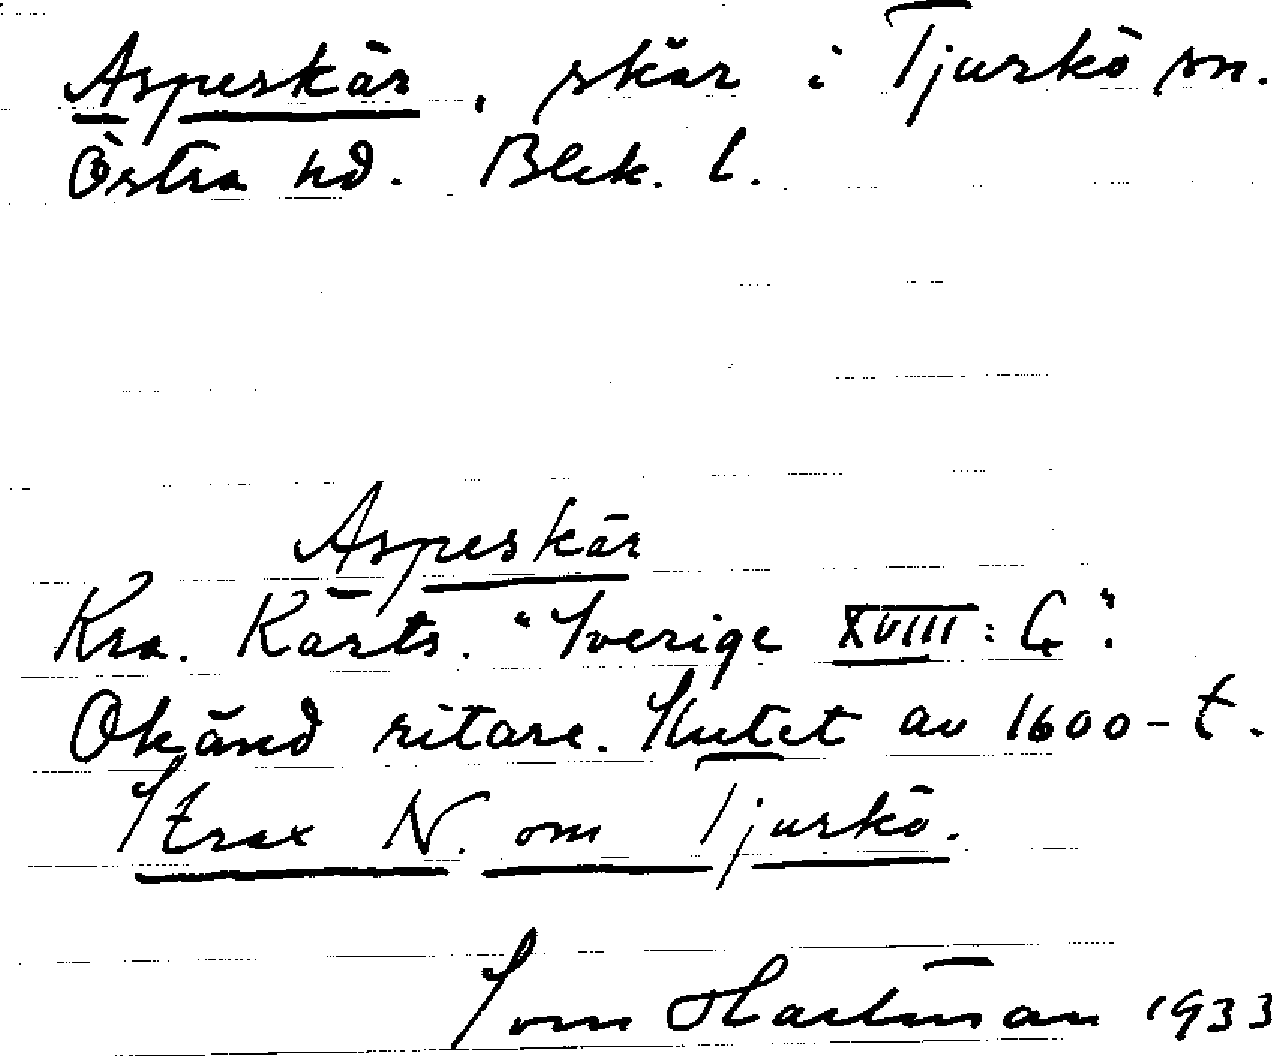 Aspeskär, skär i Tjurkö sn.
Östra hd. Blek. l.
Aspeskär
Kra. Karts. "Sverige XVIII: G".
Okänd ritare. Slutet av 1600-t.
Strax N. om Tjurkö.
Sven Hartman 1933